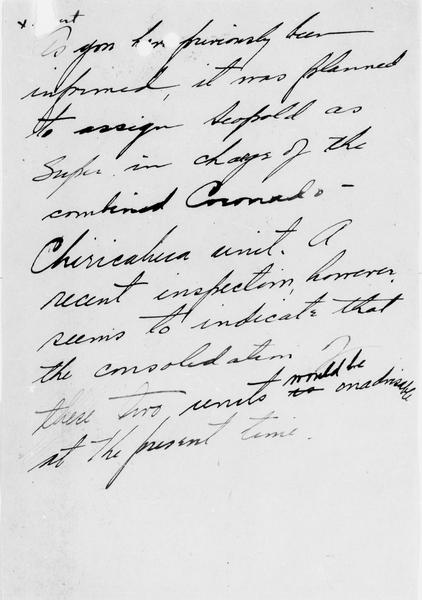 As you have previously been
informed, it was planned
to assign Leopold as
Super. in charge of the
combined Coronado -
Chiricahua unit. A
recent inspection, however,
seems to indicate that
the consolidation of
these two units would be inadvisable
at the present time.